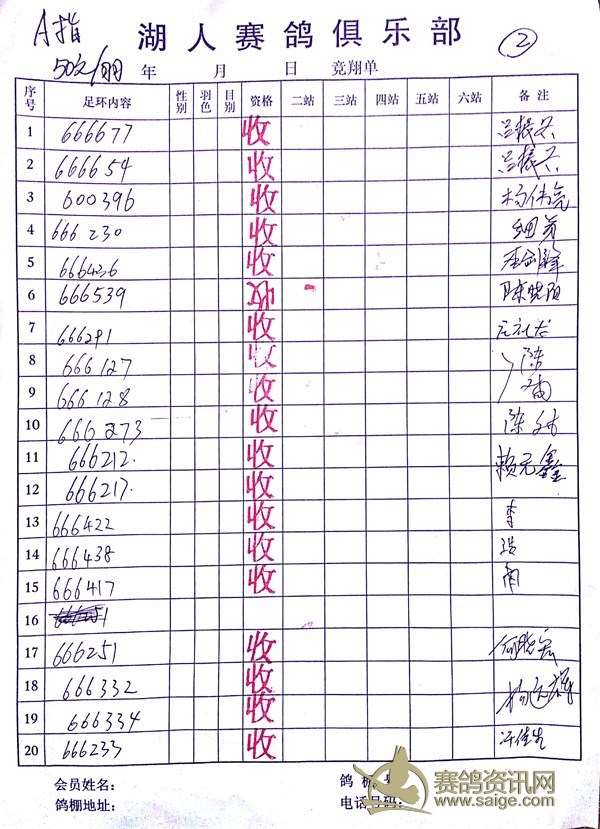 A指 湖人赛鸽俱乐部 ②
50元/羽 年 月 日 竞翔单
序号 足环内容 性别 羽色 目别 资格 二站 三站 四站 五站 六站 备注
1 666677 收
2 666654 收
3 600396 收
4 666230 收
5 666436 收
6 666539 陈晓阳
7 666291 收
8 666127 收 陈
9 666128 收
10 666273 收 陈
11 666212. 收 赖元鑫
12 666217. 收
13 666422 收 李
14 666438 收 浩
15 666417 收 南
16
17 666251 收
18 666332 收
19 666334 收
20 666233 收
会员姓名: 鸽棚
鸽棚地址: 电话号码:
赛鸽资讯网
www.saige.com